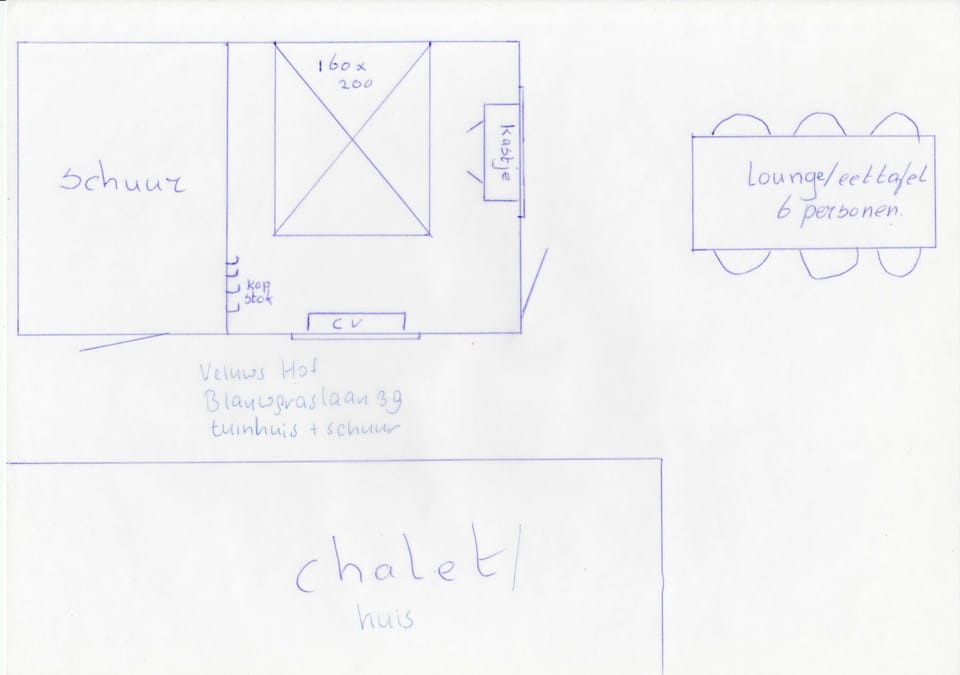 160x
200
kastje
schuur
Lounge/eettafel
6 personen.
kap
stok
CV
Veluws Hof
Blauwgraslaan 39
tuinhuis + schuur
chalet/
huis